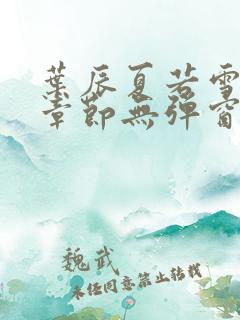 葉辰夏若雪
章節無彈窗
魏武
未经同意禁止转载